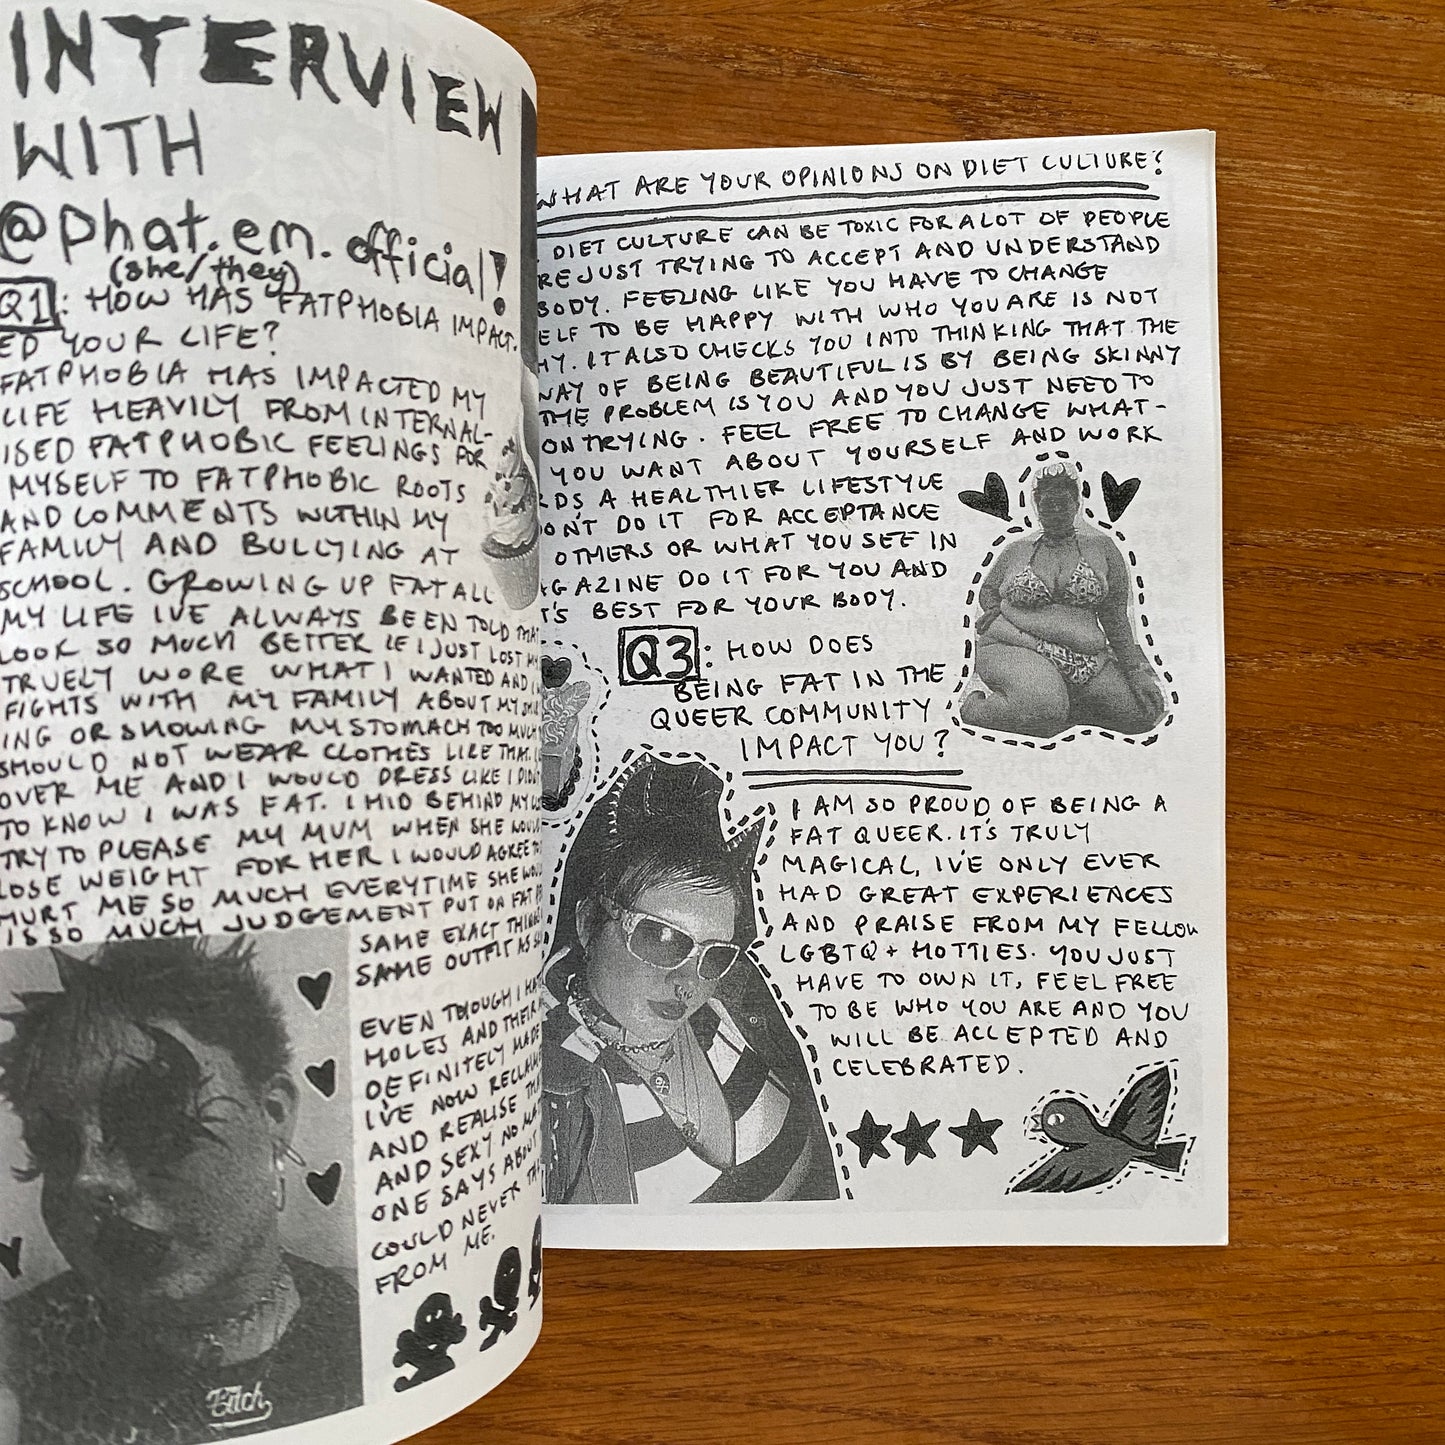 INTERVIEW
WITH
@phat.em.official!
(she/they)
Q1: HOW HAS FATPHOBIA IMPACT-
ED YOUR LIFE?
FATPHOBIA HAS IMPACTED MY
LIFE HEAVILY FROM INTERNAL-
ISED FATPHOBIC FEELINGS FOR
MYSELF TO FATPHOBIC ROOTS
AND COMMENTS WITHIN MY
FAMILY AND BULLYING AT
SCHOOL. GROWING UP FAT ALL
MY LIFE IVE ALWAYS BEEN TOLD THAT
LOOK SO MUCH BETTER IF I JUST LOST
TRUELY WORE WHAT I WANTED AND
FIGHTS WITH MY FAMILY ABOUT MY
ING OR SHOWING MY STOMACH TOO MUCH
SHOULD NOT WEAR CLOTHES LIKE THAT.
OVER ME AND I WOULD DRESS LIKE I
TO KNOW I WAS FAT. I HID BEHIND MY
TRY TO PLEASE MY MUM WHEN SHE WOULD
LOSE WEIGHT FOR HER I WOULD AGREE
HURT ME SO MUCH EVERYTIME SHE
IS SO MUCH JUDGEMENT PUT ON FAT
SAME EXACT THINGS
SAME OUTFIT AS
EVEN THOUGH I
HOLES AND THEIR
DEFINITELY MADE
I'VE NOW
AND REALISE
AND SEXY NO
ONE SAYS ABOUT
COULD NEVER
FROM ME.
Bitch
WHAT ARE YOUR OPINIONS ON DIET CULTURE?
DIET CULTURE CAN BE TOXIC FOR A LOT OF PEOPLE
RE JUST TRYING TO ACCEPT AND UNDERSTAND
BODY. FEELING LIKE YOU HAVE TO CHANGE
ELF TO BE HAPPY WITH WHO YOU ARE IS NOT
HY. IT ALSO CHECKS YOU INTO THINKING THAT THE
WAY OF BEING BEAUTIFUL IS BY BEING SKINNY
THE PROBLEM IS YOU AND YOU JUST NEED TO
ON TRYING. FEEL FREE TO CHANGE WHAT-
YOU WANT ABOUT YOURSELF AND WORK
RDS A HEALTHIER LIFESTYLE
ON'T DO IT FOR ACCEPTANCE
OTHERS OR WHAT YOU SEE IN
AGAZINE DO IT FOR YOU AND
T'S BEST FOR YOUR BODY.
Q3: HOW DOES
BEING FAT IN THE
QUEER COMMUNITY
IMPACT YOU?
I AM SO PROUD OF BEING A
FAT QUEER. IT'S TRULY
MAGICAL, I'VE ONLY EVER
HAD GREAT EXPERIENCES
AND PRAISE FROM MY FELLOW
LGBTQ+ HOTTIES. YOU JUST
HAVE TO OWN IT, FEEL FREE
TO BE WHO YOU ARE AND YOU
WILL BE ACCEPTED AND
CELEBRATED.